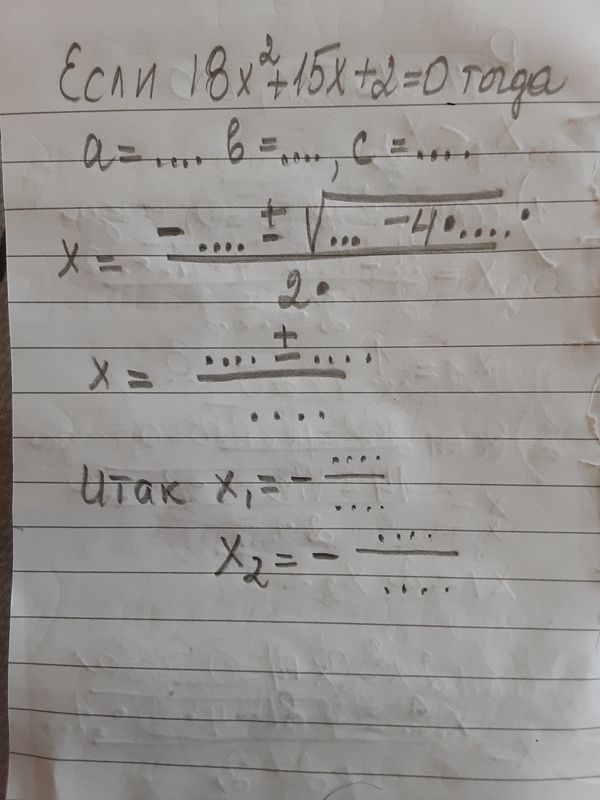 Если 18x²+15x+2=0 тогда
a=.... в=...., c=....
x= -.... ± √... -4•....•
2•
x= .... ± ....
....
Итак x₁=- ....
....
x₂=- ....
....